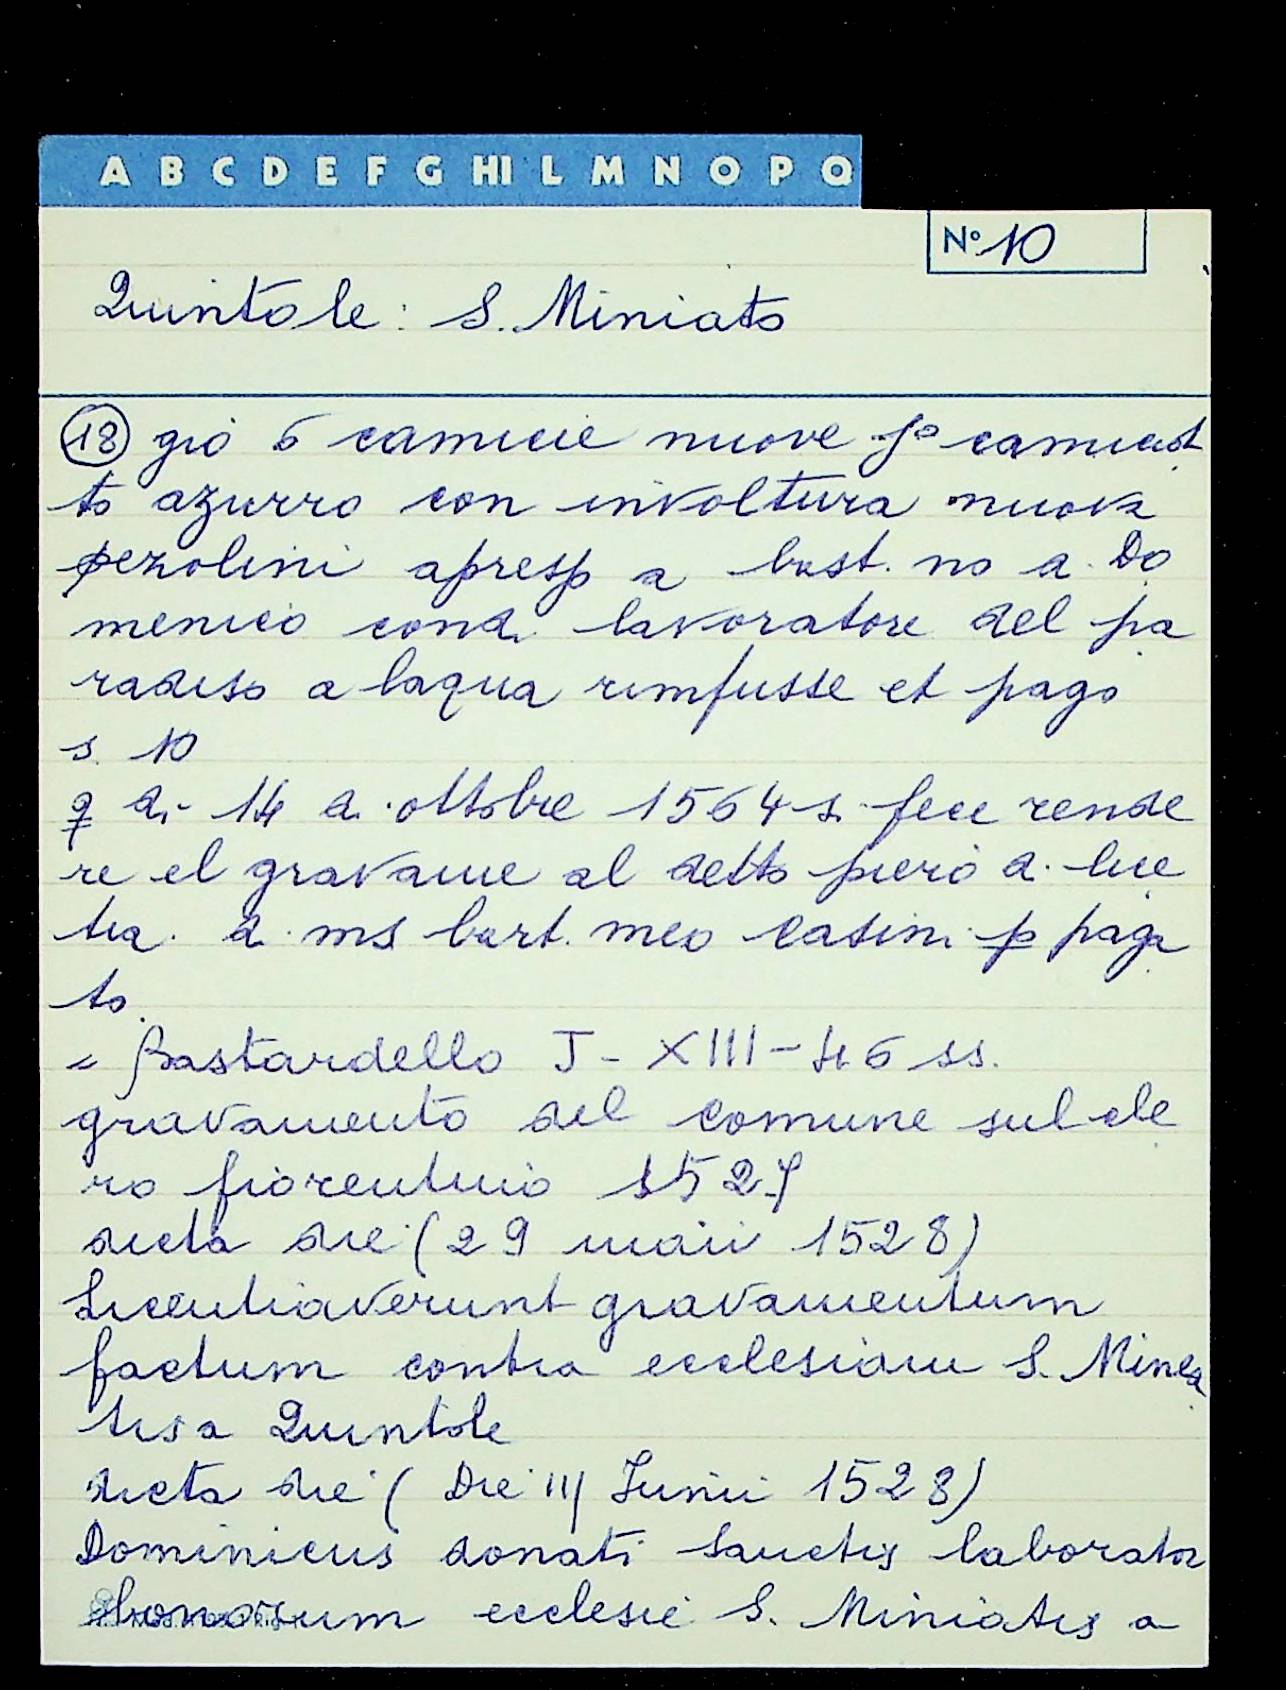 A B C D E F G HI L M N O P Q
N° 10
Quintole: S. Miniato
(18) gio 6 camicie nuove camiciot
to azurro con involtura nuova
pezolini apresp a bast. no a. Do
menico cond. lavoratore del pa
radiso a laqua rimfusse et pago
s. 10
di 14 d. ottobre 1564 s. fece rende
re el gravame al detto piero d. lice
tia. d. ms bart. meo Casini p paga
to.
" Bastardello J - XIII - 46 ss.
gravamento del Comune sul cle
ro fiorentino 1527
dicta die (29 maii 1528)
Licentiaverunt gravamentum
factum contra ecclesiam S. Minea
tis a Quintole
dicta die (Die III Junii 1528)
Dominicus donati Sanctis laborator
bonorum ecclesie S. Miniatis a